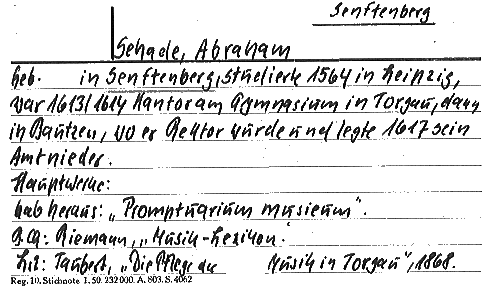 Senftenberg
Schade, Abraham
Geb. in Senftenberg, studierte 1564 in Leipzig,
war 1613/1614 Kantor am Gymnasium in Torgau, dann
in Bautzen, wo er Rektor wurde und legte 1617 sein
Amt nieder.
Hauptwerke:
Gab heraus: „Promptuarium musicum".
Q.Q: Riemann, „Musik-Lexikon."
Lit: Taubert, „Die Pflege der Musik in Torgau", 1868.
Reg. 10. Stichnote 1. 50. 232000. A. 803. S. 4062